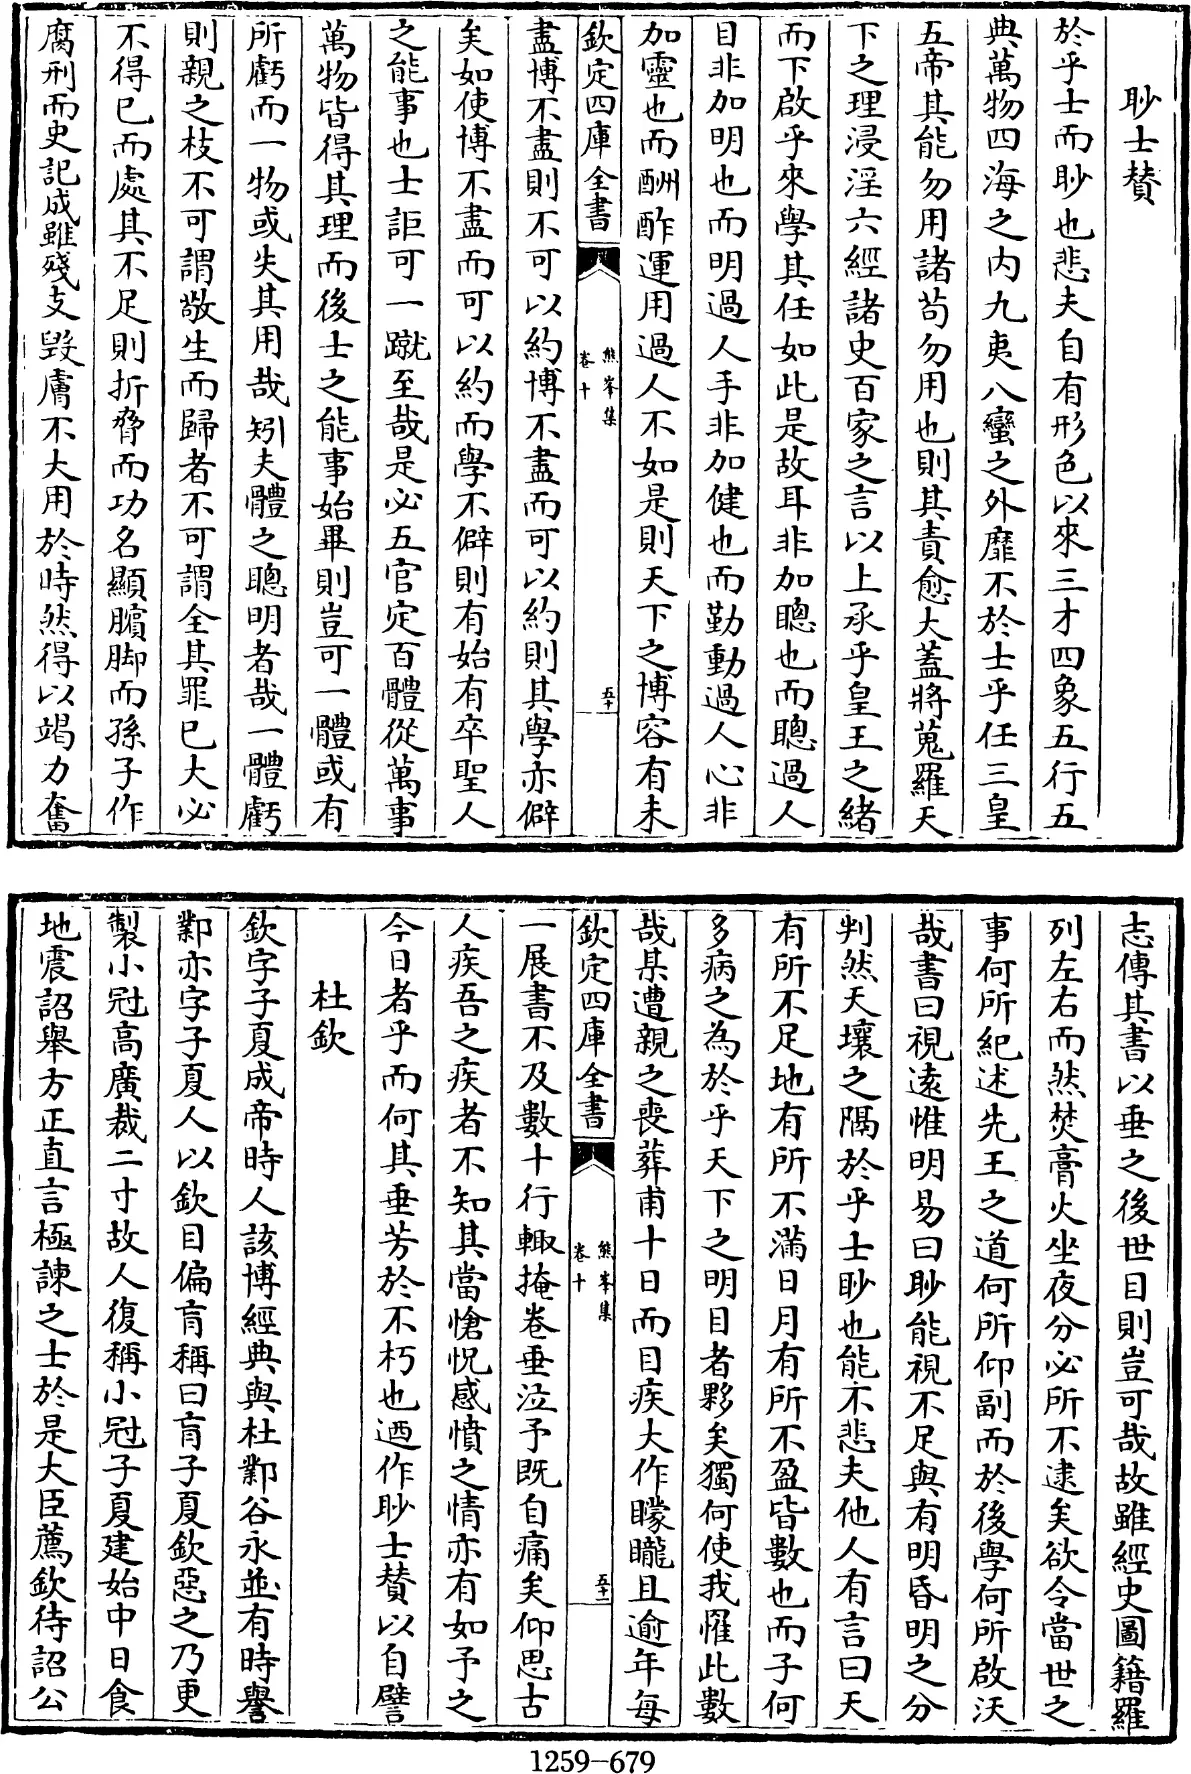 眇士賛
於乎士而眇也悲夫自有形色以來三才四象五行五
典萬物四海之内九夷八蠻之外靡不於士乎任三皇
五帝其能勿用諸茍勿用也則其責愈大蓋將蒐羅天
下之理浸淫六經諸史百家之言以上承乎皇王之緒
而下啟乎來學其任如此是故耳非加聰也而聰過人
目非加明也而明過人手非加健也而勤動過人心非
加靈也而酬酢運用過人不如是則天下之博容有未
欽定四庫全書
熊峯集
卷十
五十
盡博不盡則不可以約博不盡而可以約則其學亦僻
矣如使博不盡而可以約而學不僻則有始有卒聖人
之能事也士詎可一蹴至哉是必五官定百體從萬事
萬物皆得其理而後士之能事始畢則豈可一體或有
所虧而一物或失其用哉矧夫體之聰明者哉一體虧
則親之枝不可謂敬生而歸者不可謂全其罪已大必
不得已而處其不足則折脅而功名顯臏脚而孫子作
腐刑而史記成雖殘支毀膚不大用於時然得以竭力奮
志傳其書以垂之後世目則豈可哉故雖經史圖籍羅
列左右而然焚膏火坐夜分必所不逮矣欲令當世之
事何所紀述先王之道何所仰副而於後學何所啟沃
哉書曰視逺惟明易曰眇能視不足與有明昏明之分
判然天壤之隔於乎士眇也能不悲夫他人有言曰天
有所不足地有所不滿日月有所不盈皆數也而子何
多病之為於乎天下之明目者夥矣獨何使我罹此數
哉某遭親之喪葬甫十日而目疾大作矇矓且逾年每
欽定四庫全書
熊峯集
卷十
五十一
一展書不及數十行輙掩卷垂泣予既自痛矣仰思古
人疾吾之疾者不知其當愴怳感憤之情亦有如予之
今日者乎而何其垂芳於不朽也廼作眇士賛以自譬
杜欽
欽字子夏成帝時人該博經典與杜鄴谷永並有時譽
鄴亦字子夏人以欽目偏盲稱曰盲子夏欽惡之乃更
製小冠高廣裁二寸故人復稱小冠子夏建始中日食
地震詔舉方正直言極諫之士於是大臣薦欽待詔公
1259-679